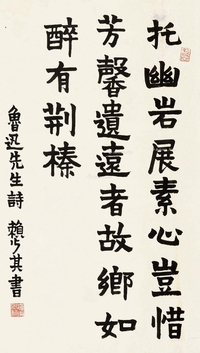 托幽岩展素心豈惜
芳馨遺遠者故鄉如
醉有荆榛
魯迅先生詩 賴少其書